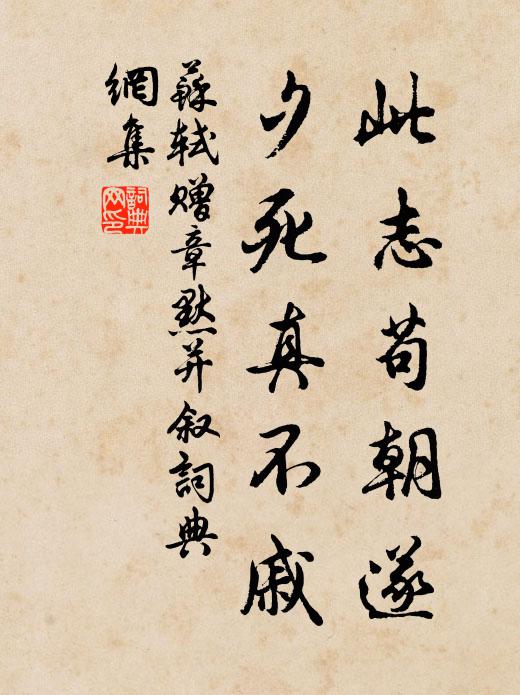 此志苟朝遂
夕死真不戚
蘇軾贈章默并叙詞典
網集
詞典
网印